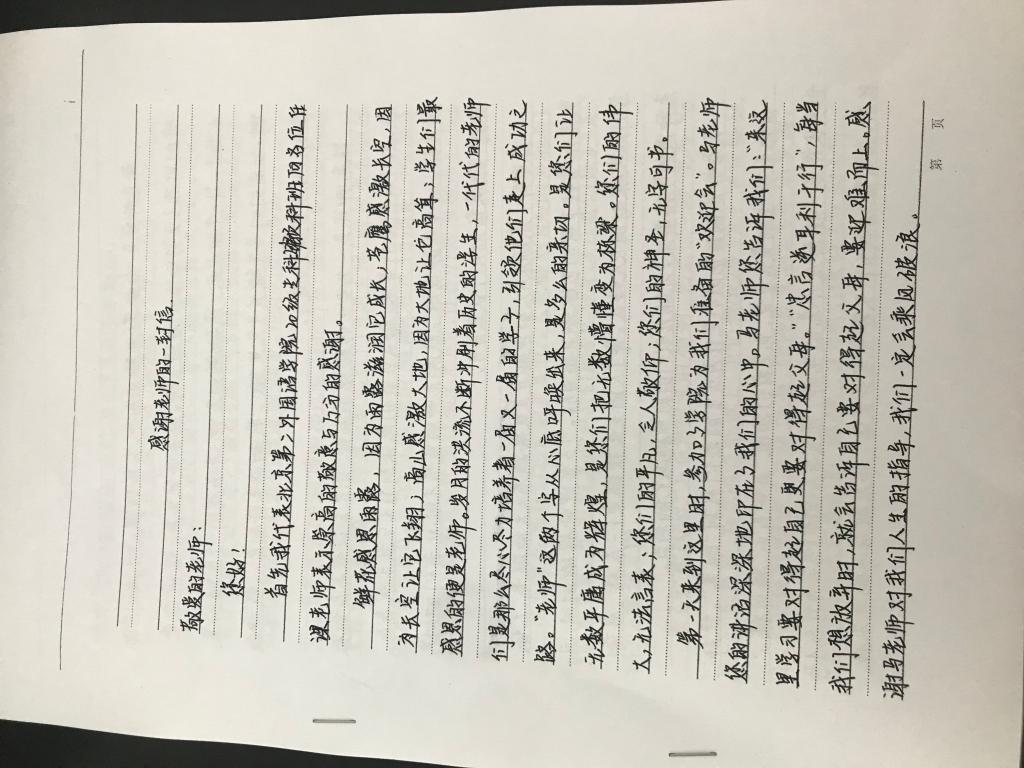 感谢老师的一封信
敬爱的老师：
您好！
首先我代表北京第二外国语学院20级专科班的各位任
课老师表示崇高的敬意与万分的感谢。
鲜花感恩雨露，因为雨露滋润它成长；苍鹰感激长空，因
为长空让它飞翔；高山感激大地，因为大地让它高耸；学生们最
感恩的便是老师。岁月的洪流不断冲刷着历史的浮尘，一代代的老师
们是那么尽心尽力培养着一届又一届的学子，引领他们走上成功之
路。“老师”这两个字从心底呼唤出来，是多么的亲切。是您们让
无数平庸成为辉煌，是您们把无数懵懂变为栋梁。您们的伟
大，无法言表；您们的平凡，令人敬仰；您们的神圣，无字可书。
第一天来到这里时，参加了学院为我们准备的“欢迎会”。马老师
您的讲话深深地印在了我们的心中。马老师您告诉我们：“来这
里学习要对得起自己更要对得起父母。”“忠言逆耳利于行”，每当
我们想放弃时，就会告诉自己要对得起父母，要迎难而上。感
谢马老师对我们人生的指导，我们一定会乘风破浪。
第 页